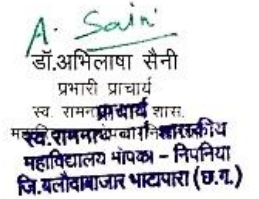 A. Saini
डॉ.अभिलाषा सैनी
प्रभारी प्राचार्य
स्व. रामनाथ शास.
प्राचार्य
स्व.रामनाथ वर्मा शासकीय
महाविद्यालय मोपका – निपनिया
जि.बलौदाबाजार भाटापारा (छ.ग.)